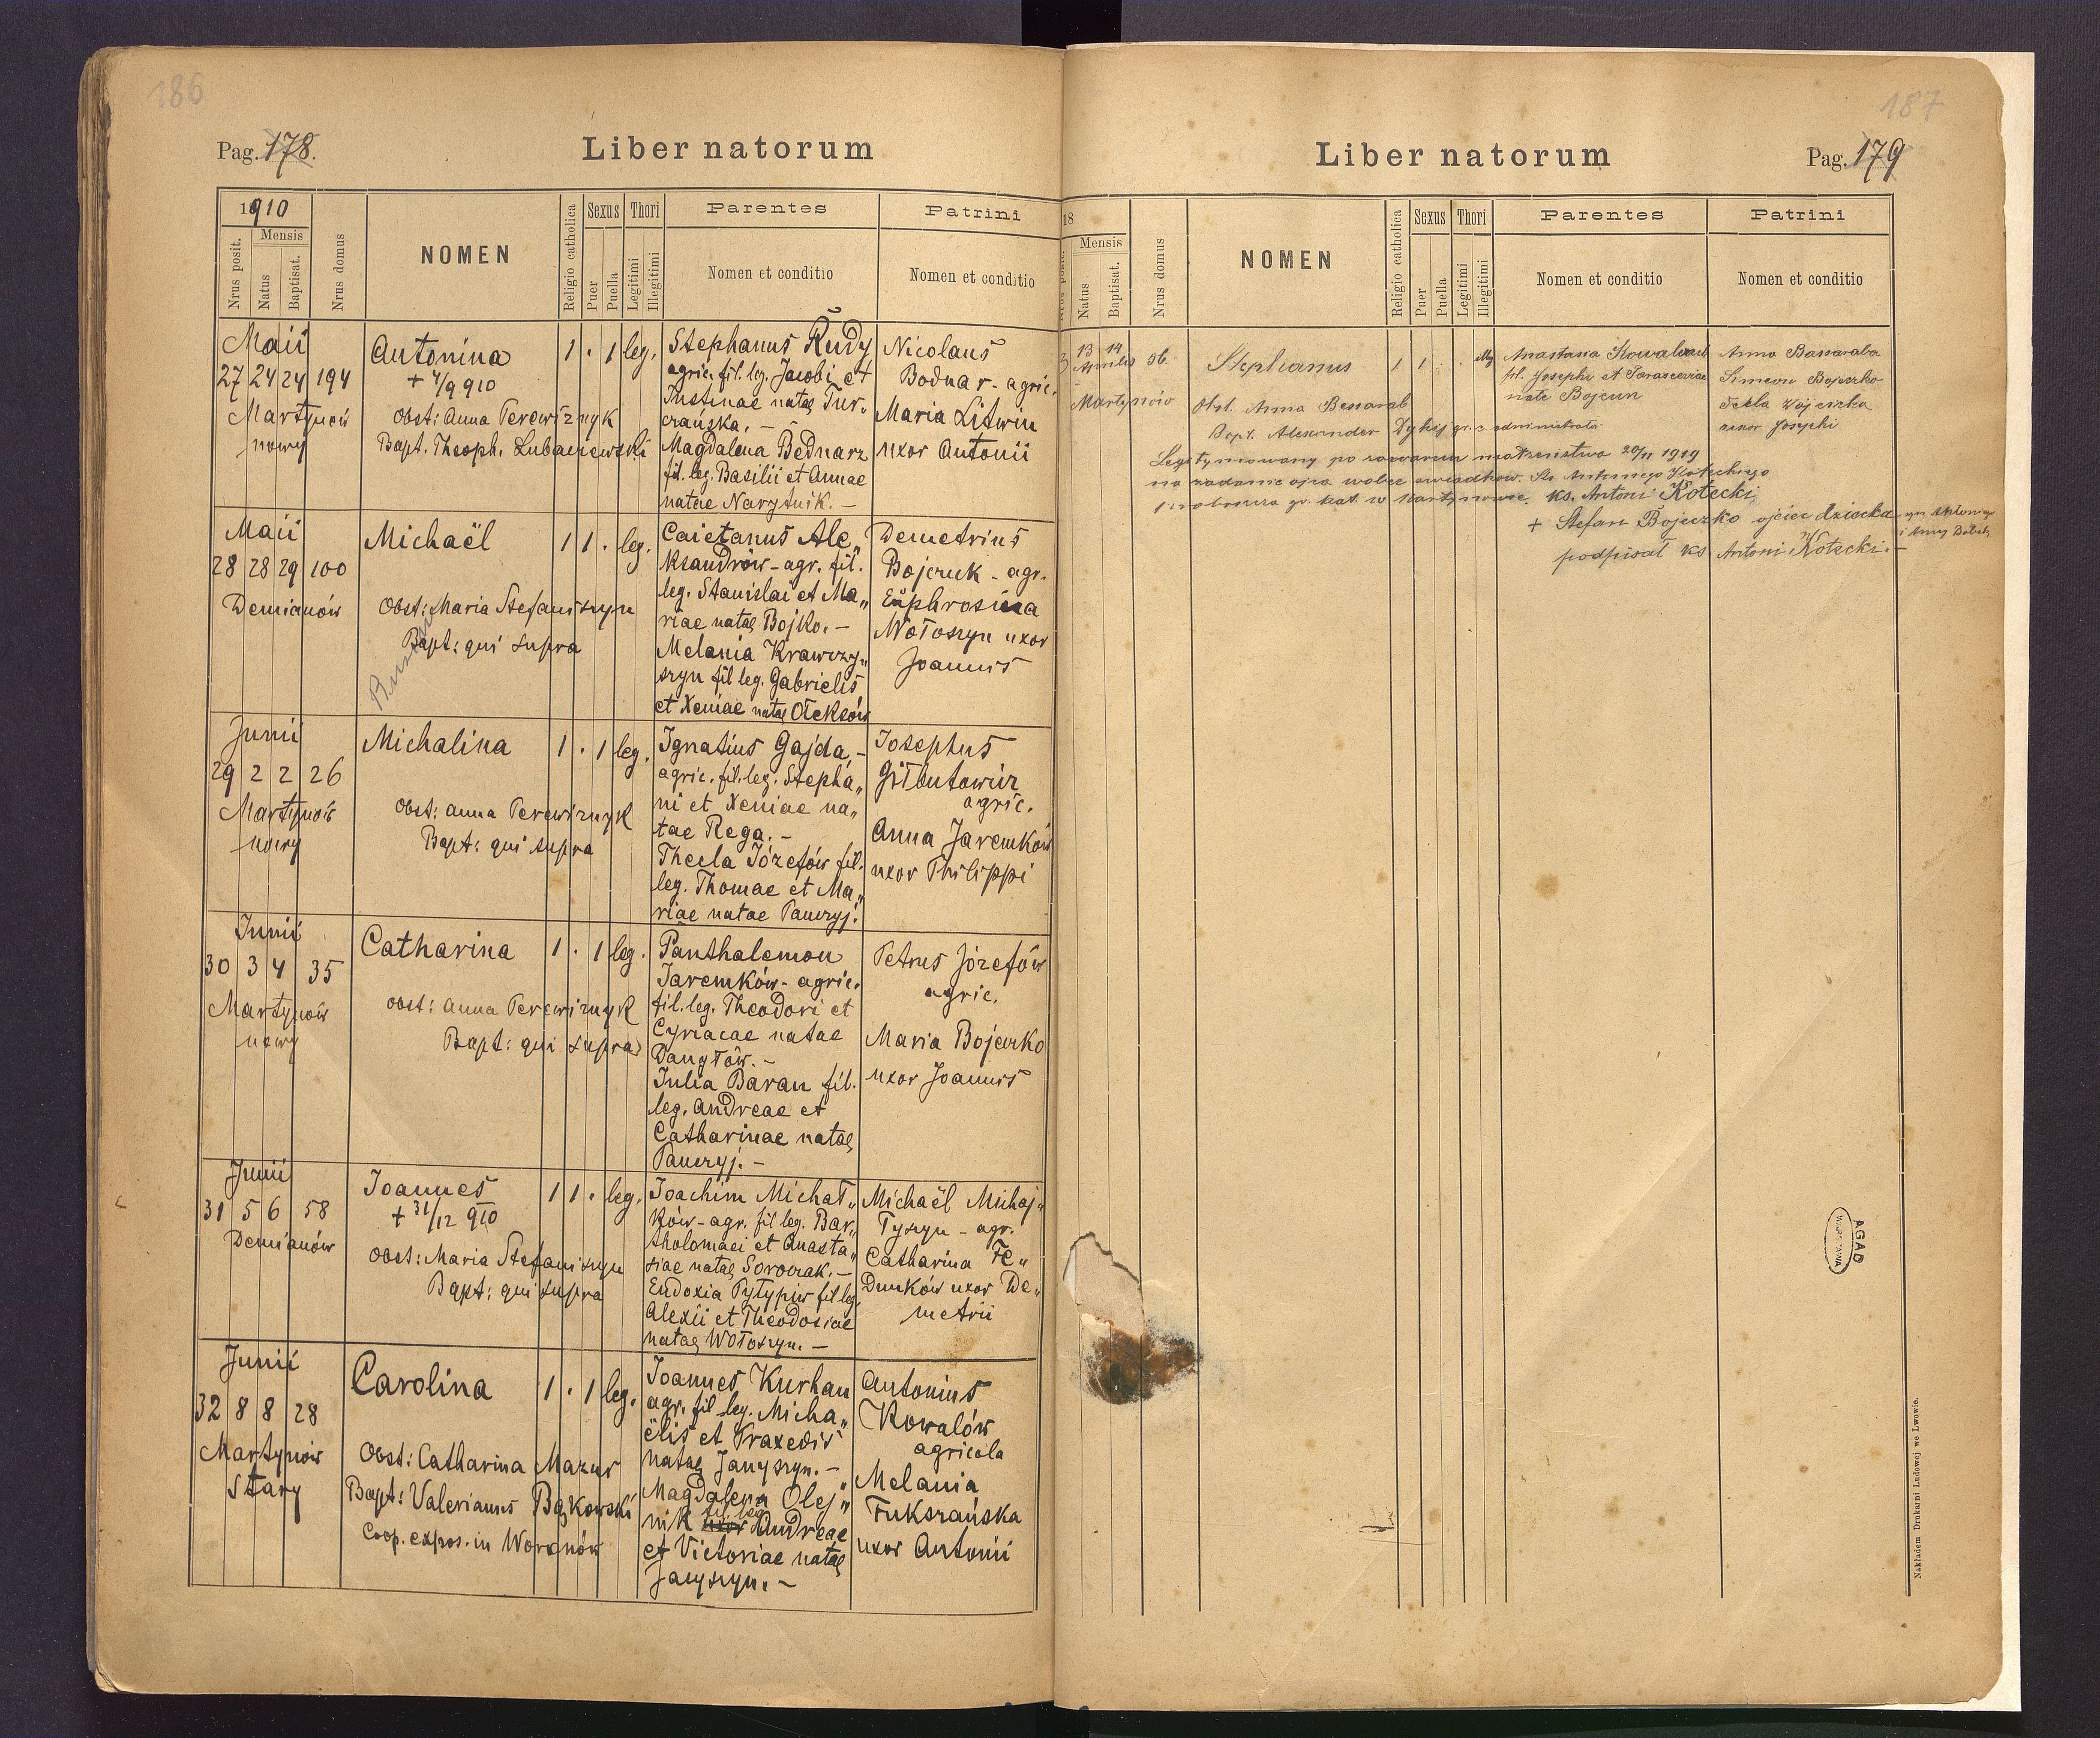 186
Pag. 178.
Liber natorum
1910
Nrus posit.
Mensis
Natus
Baptisat.
Nrus domus
NOMEN
Religio catholica
Sexus
Puer
Puella
Thori
Legitimi
Illegitimi
Parentes
Nomen et conditio
Patrini
Nomen et conditio
Maii
27 24 24 194
Martynów
nowy
Antonina
+ 4/9 910
Obst: Anna Perewiznyk
Bapt. Theoph. Lubaczewski
1 . 1 leg.
Stephanus Rudy
agric. fil. leg. Jacobi et
Justinae natae Tur„
czańska. –
Magdalena Bednarz
fil. leg. Basilii et Annae
natae Narytnik. –
Nicolaus
Bodnar - agric.
Maria Litwin
uxor Antonii
Maii
28 28 29 100
Demianów
Michaël
Obst: Maria Stefaniszyn
Bapt: qui supra
1 1 . leg.
Caietanus Ale„
ksandrów - agr. fil.
leg. Stanislai et Ma„
riae natae Bojko. –
Melania Krawczy„
szyn fil leg. Gabrielis
et Xeniae natae Ołeksów
Demetrius
Bojczuk - agr.
Euphrosina
Wołoszyn uxor
Joannis
Junii
29 2 2 26
Martynów
nowy
Michalina
Obst: Anna Perewiznyk
Bapt: qui supra
1 . 1 leg.
Ignatius Gajda, –
agric. fil. leg. Stepha„
ni et Xeniae na„
tae Rega. –
Thecla Józefów fil.
leg. Thomae et Ma„
riae natae Panczyj.
Josephus
Giłbutowicz
agric.
Anna Jaremków
uxor Philippi
Junii
30 3 4 35
Martynów
nowy
Catharina
Obst: Anna Perewiznyk
Bapt: qui supra
1 . 1 leg.
Panthalemon
Jaremków - agric.
fil. leg. Theodori et
Cyriacae natae
Danyłów. –
Julia Baran fil.
leg. Andreae et
Catharinae natae
Panczyj. –
Petrus Józefów
agric.
Maria Bojeczko
uxor Joannis
Junii
31 5 6 58
Demianów
Joannes
+ 31/12 910
Obst: Maria Stefaniszyn
Bapt: qui supra
1 1 . leg.
Joachim Michał„
ków - agr. fil leg. Bar„
tholomaei et Anasta„
siae natae Soroczak. –
Eudoxia Pyłypiw fil leg.
Alexii et Theodosiae
natae Wołoszyn. –
Michaël Michaj„
łyszyn - agr.
Catharina Fe„
Dunków uxor De„
metrii
Junii
32 8 8 28
Martynów
Stary
Carolina
Obst: Catharina Mazur
Bapt: Valerianus Bąkowski
Coop. expos. in Woronów
1 . 1 leg.
Joannes Kurhan
agr. fil leg. Micha„
ëlis et Praxedis
natae Janyszyn. –
Magdalena Olej„
nik uxor fil leg. Andreae
et Victoriae natae
Jacyszyn. –
Antonius
Kowalów
agricola
Melania
Fukszańska
uxor Antonii
187
Liber natorum
Pag. 179
18
Mensis
Natus
Baptisat.
Nrus domus
NOMEN
Religio catholica
Sexus
Puer
Puella
Thori
Legitimi
Illegitimi
Parentes
Nomen et conditio
Patrini
Nomen et conditio
3 13 14 56
Aprilis
Martynów
Stephanus
Obst. Anna Bessarab
Bapt. Alexander Dykyj gr. c. administrator
1 1 . .
Anastasia
fil. Josephi et Parasceviae
nate Bojcun
Anna Bassaraba
Simeon Bojeczko
Tekla Wojcicka
uxor Josephi
Legitymowany po zawarciu małżeństwa 20/II 1919
na żądanie ojca wobec świadków. Ks. Antoniego Koteckiego
gr. kat. w Martynowie. Ks. Antoni Kotecki
+ Stefan Bojeczko ojciec dziecka syn
i Anny
podpisał ks Antoni Kotecki. –
AGAD
WARSZAWA
Nakładem Drukarni Ludowej we Lwowie.